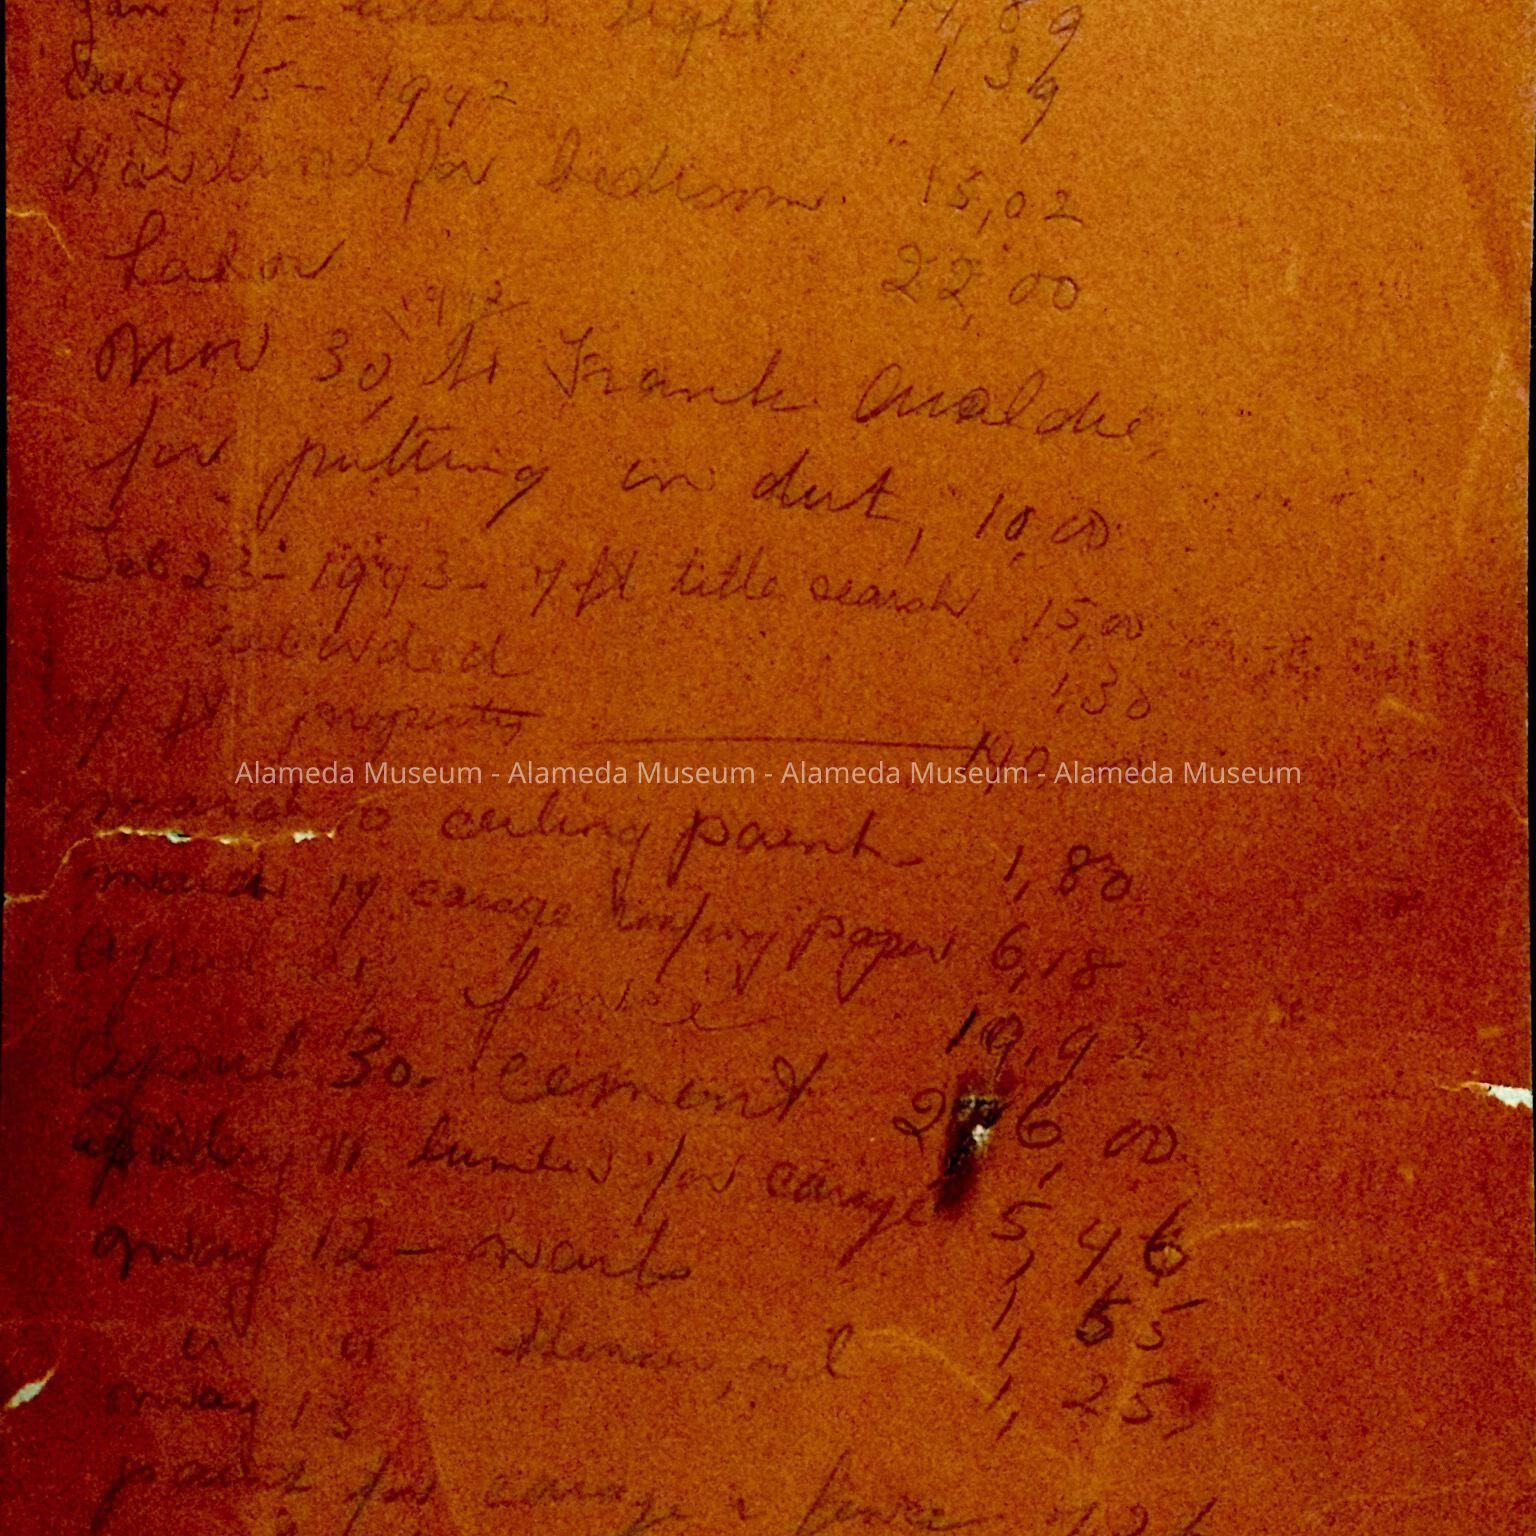 Jan 19 - kitchen light 14,89
Aug 15 - 1942 1,39
for bedroom 15,02
Labor 22,00
1942
nov 30, to Frank
for putting in dirt, 10,00
Feb 23 - 1943 - 7 ft title search 15,00
recorded 1,30
7 ft property 140
march 10 ceiling paint 1,80
march 19 carage roofing paper 6,18
April 21 fence 19,92
Cepril 30. cement 26,00
11 lumber for carage 5,46
may 12 - 1,55
" " thiner, oil 1,25
may 13
paint for carage & fence
Alameda Museum - Alameda Museum - Alameda Museum - Alameda Museum